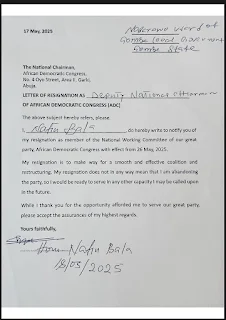 17 May, 2025
Gombe State
The National Chairman,
African Democratic Congress,
No. 4 Oye Street, Area F, Garki,
Abuja.
LETTER OF RESIGNATION AS Deputy National Chairman
OF AFRICAN DEMOCRATIC CONGRESS (ADC)
The above subject hereby refers, please.
I, Nafiu Bala do hereby write to notify you of
my resignation as member of the National Working Committee of our great
party, African Democratic Congress with effect from 26 May, 2025.
My resignation is to make way for a smooth and effective coalition and
restructuring. My resignation does not in any way mean that I am abandoning
the party, so I would be ready to serve in any other capacity I may be called upon
in the future.
While I thank you for the opportunity afforded me to serve our great party,
please accept the assurances of my highest regards.
Yours faithfully,
Hon Nafiu Bala
18/05/2025